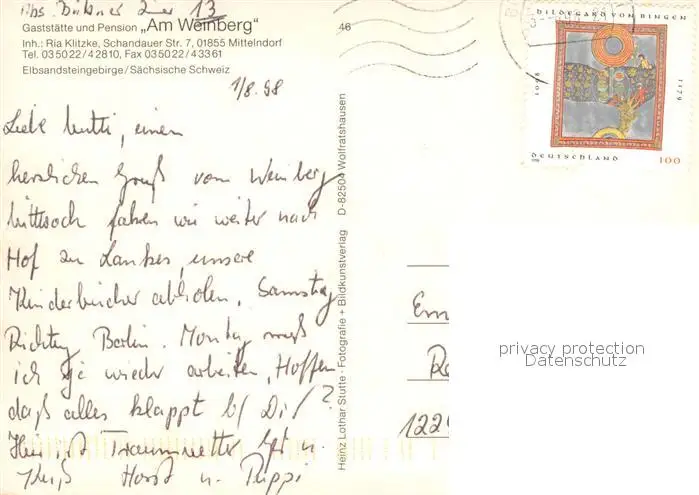 Abs. Büttner Zimmer 13
Gaststätte und Pension „Am Weinberg“
Inh.: Ria Klitzke, Schandauer Str. 7, 01855 Mittelndorf
Tel. 035022/42810, Fax 035022/43361
Elbsandsteingebirge/Sächsische Schweiz
1/8.98
Liebe Mutti, einen
herzlichen Gruß vom Weinberg
Mittwoch fahren wir weiter nach
Hof zu unsere
Kinderbücher abholen, Samstag
Richtung Berlin. Montag muß
ich ja wieder arbeiten, Hoffen
daß alles klappt bei Dir?
Hier ist Traumwetter u.
Kuß Horst u. Puppi
46
Heinz Lothar Stutte · Fotografie + Bildkunstverlag D-82504 Wolfratshausen
HILDEGARD VON BINGEN
1098
1179
DEUTSCHLAND 100
1998
privacy protection
Datenschutz